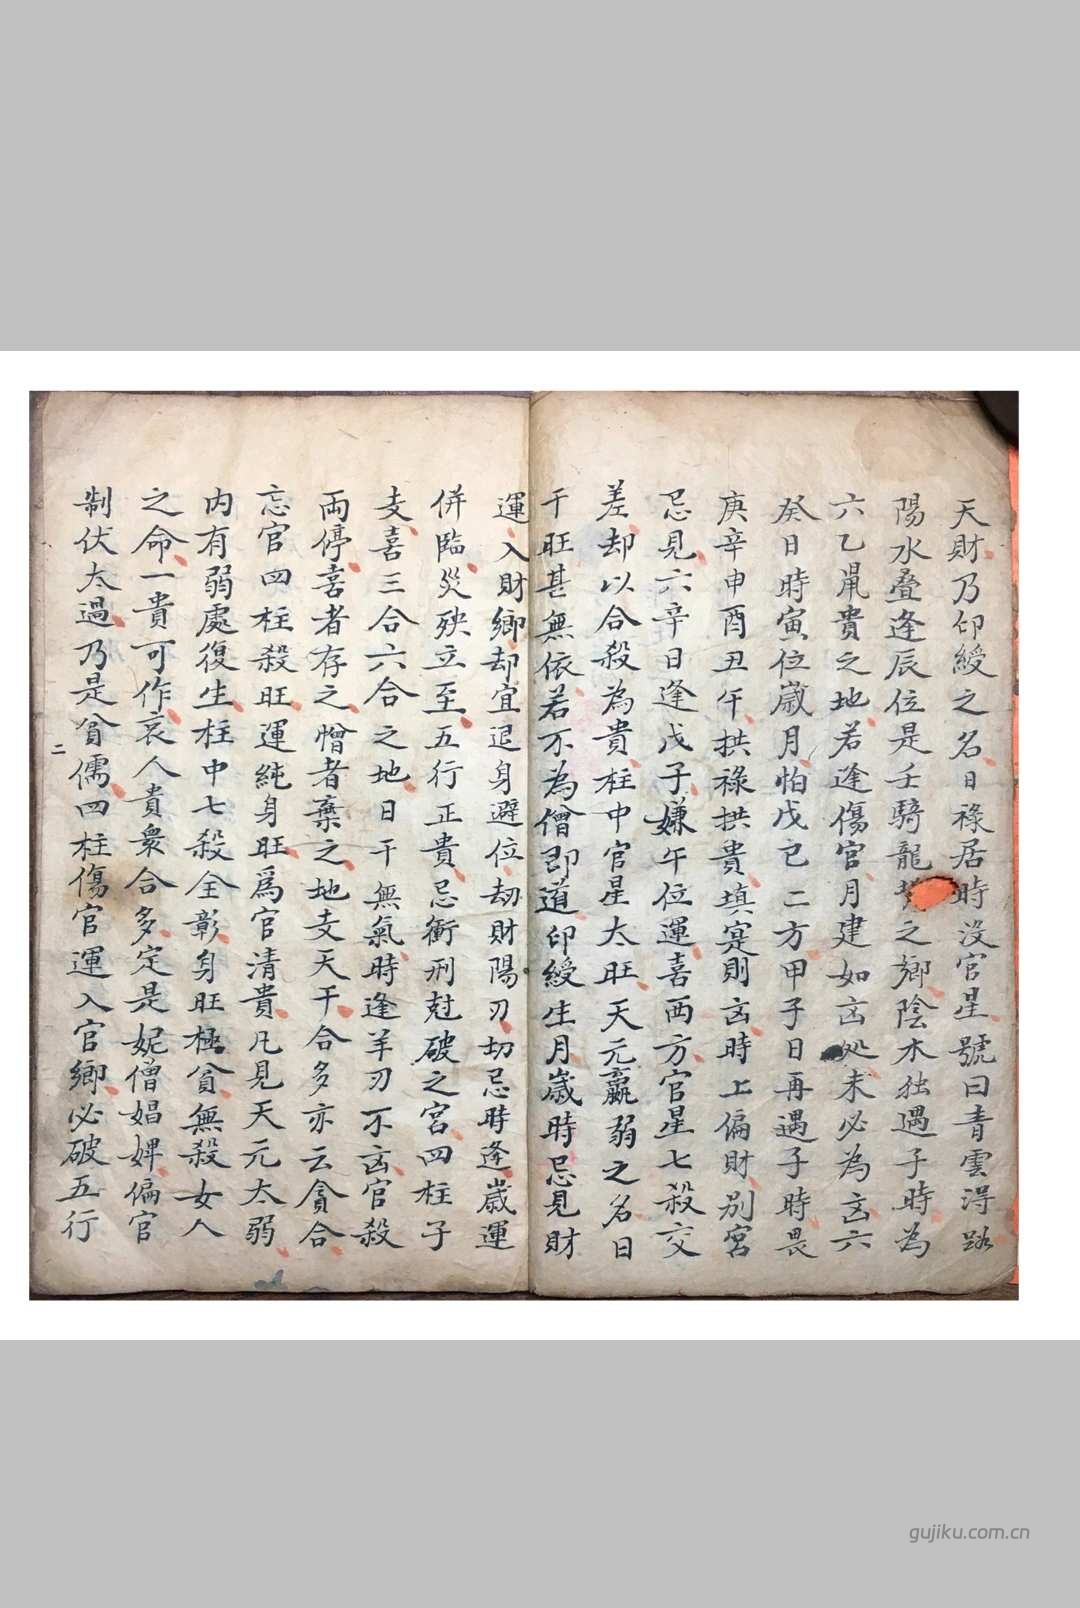 天財乃印綬之名日祿居時没官星號曰青雲得路
陽水叠逢辰位是壬騎龍之鄉陰木独遇子時為
六乙鼠貴之地若逢傷官月建如凶処未必為凶六
癸日時寅位歲月怕戊己二方甲子日再遇子時畏
庚辛申酉丑午拱祿拱貴填寔則凶時上偏財別宮
忌見六辛日逢戊子嫌午位運喜西方官星七殺交
差却以合殺為貴柱中官星太旺天元羸弱之名日
干旺甚無依若不為僧即道印綬生月歲時忌見財
運入財鄉却宜退身避位刼財陽刃切忌時逢歲運
併臨災殃立至五行正貴忌衝刑尅破之宮四柱子
支喜三合六合之地日干無氣時逢羊刃不凶官殺
兩停喜者存之憎者棄之地支天干合多亦云貪合
忘官四柱殺旺運純身旺爲官清貴凡見天元太弱
内有弱處復生柱中七殺全彰身旺極貧無殺女人
之命一貴可作哀人貴衆合多定是妮僧娼婢偏官
制伏太過乃是貧儒四柱傷官運入官鄉必破五行
二
gujiku.com.cn